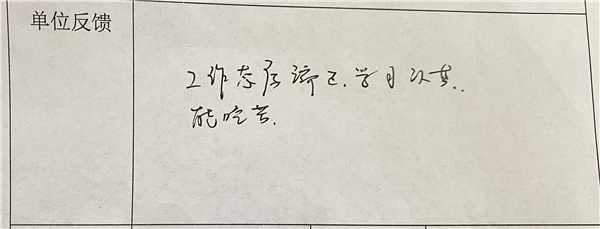 单位反馈
工作态度端正.学习认真..
能吃苦.